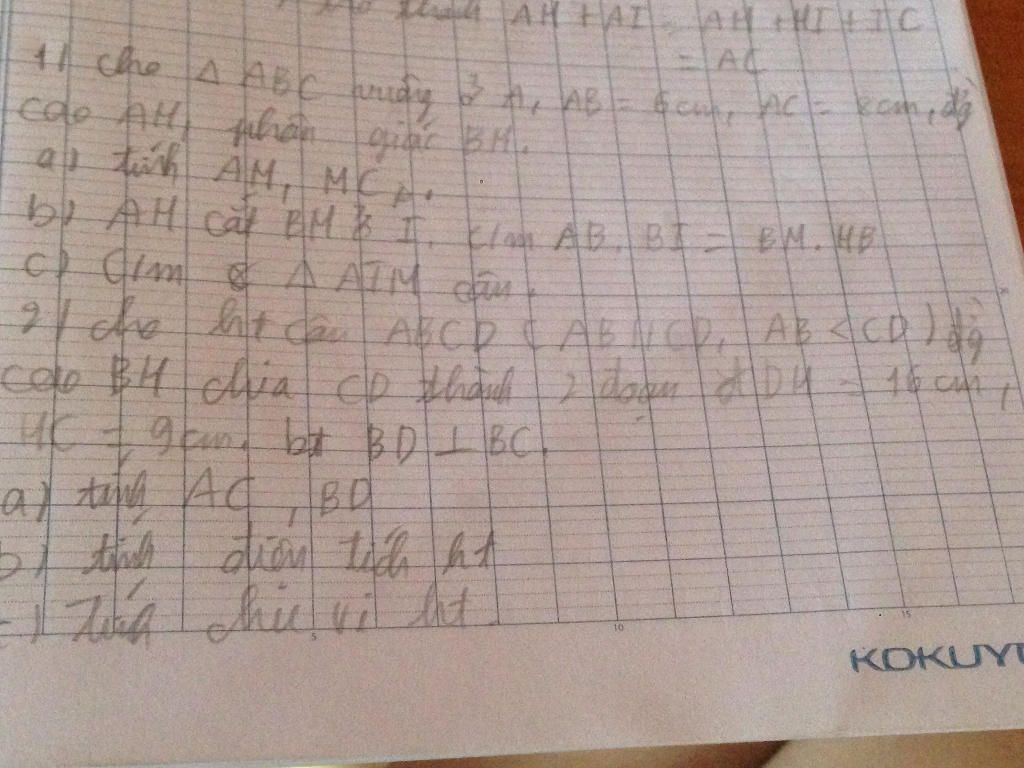 AH + AI = AH + HI + IC
= AC
1) cho Δ ABC vuông ở A, AB = 6cm, AC = 8cm, đg
cao AH, phân giác BM.
a) tính AM, MC
b) AH cắt BM ở I. c/m AB. BI = BM. HB
c) C/m Δ AIM cân.
2) cho ht cân ABCD ( AB // CD, AB < CD ) đg
cao BH chia CD thành 2 đoạn DH = 16 cm,
HC = 9cm. bt BD ⊥ BC.
a) tính AC, BD
b) tính diện tích ht
c) Tính chu vi ht
5 10 15
KOKUY